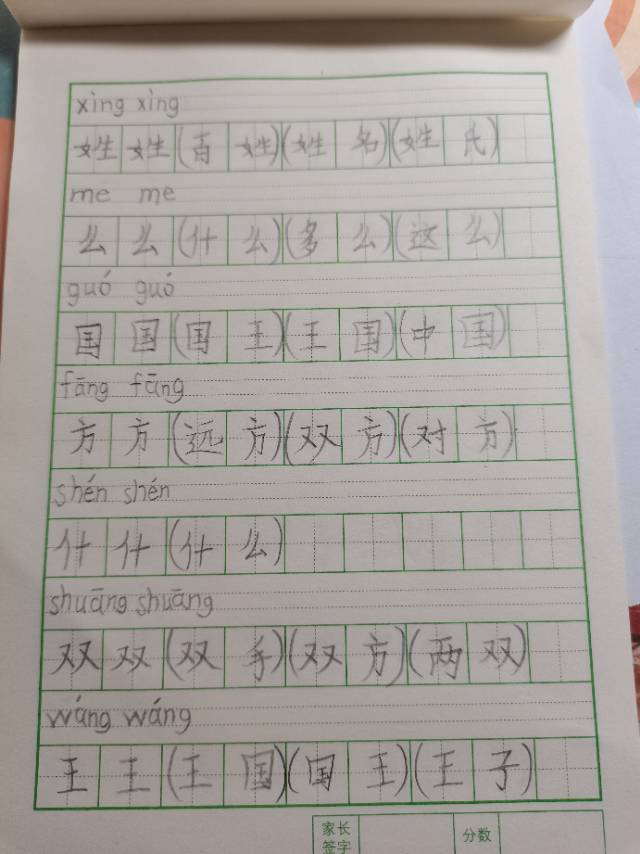 xìng xìng
姓姓(百姓)(姓名)(姓氏)
me me
么么(什么)(多么)(这么)
guó guó
国国(国王)(王国)(中国)
fāng fāng
方方(远方)(双方)(对方)
shén shén
什什(什么)
shuāng shuāng
双双(双手)(双方)(两双)
wáng wáng
王王(王国)(国王)(王子)
家长签字 分数